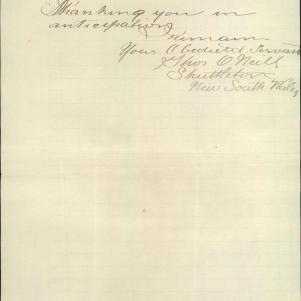 Thanking you in
anticipation
I remain
Your Obedient Servant
Thos O'Neill
Shuttleton
New South Wales